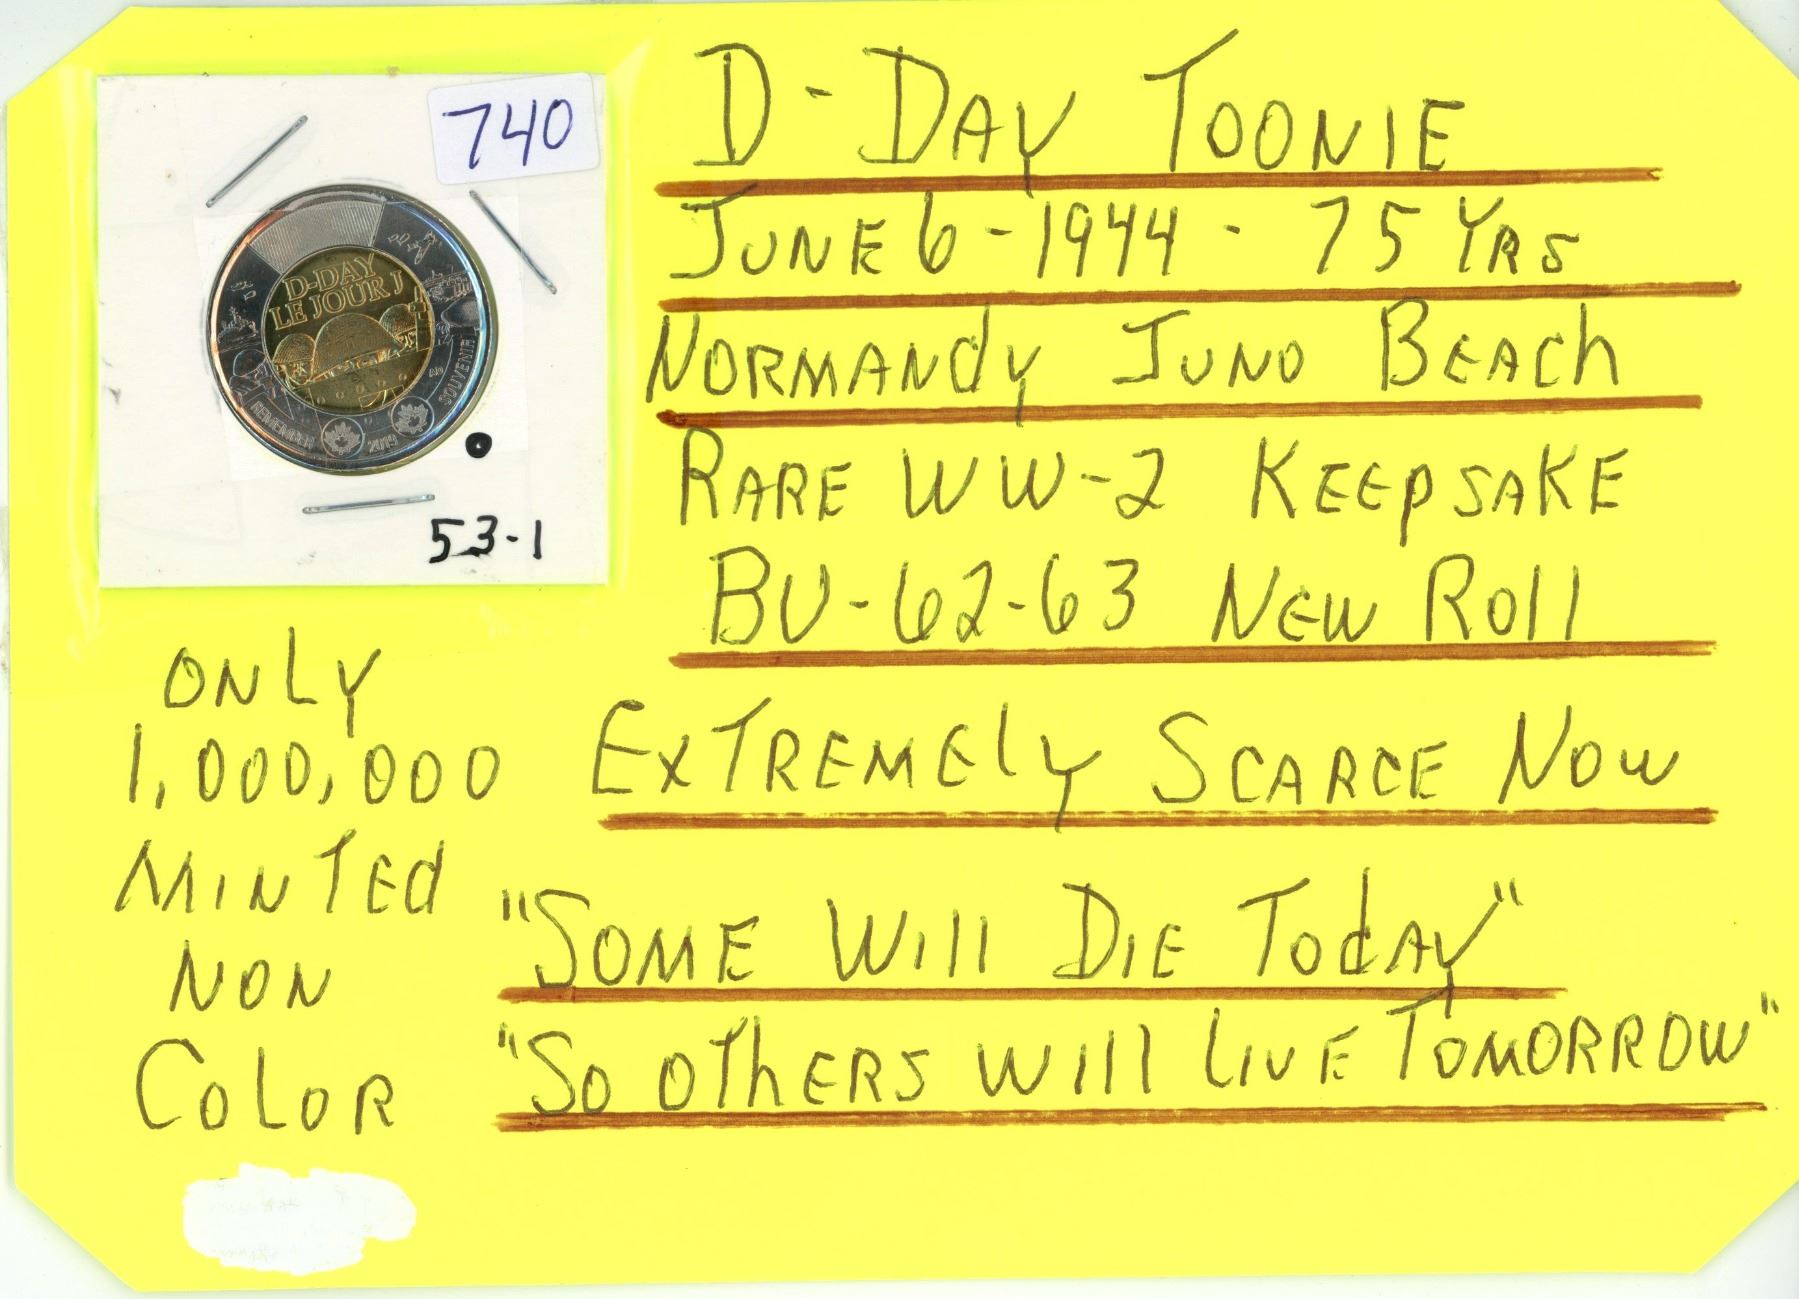 740
D-DAY
LE JOUR J
REMEMBER
2019
SOUVENIR
53-1
D-DAY TOONIE
JUNE 6-1944 - 75 YRS
NORMANdy JUNO BEACh
RARE WW-2 KEEpSAKE
BU-62-63 NEW ROll
EXTREMEly SCARCE NOW
ONLY
1,000,000
MINTEd
NON
COLOR
"SOME Will DIE TOdAY"
"SO OThERS Will LIVE TOMORROW"